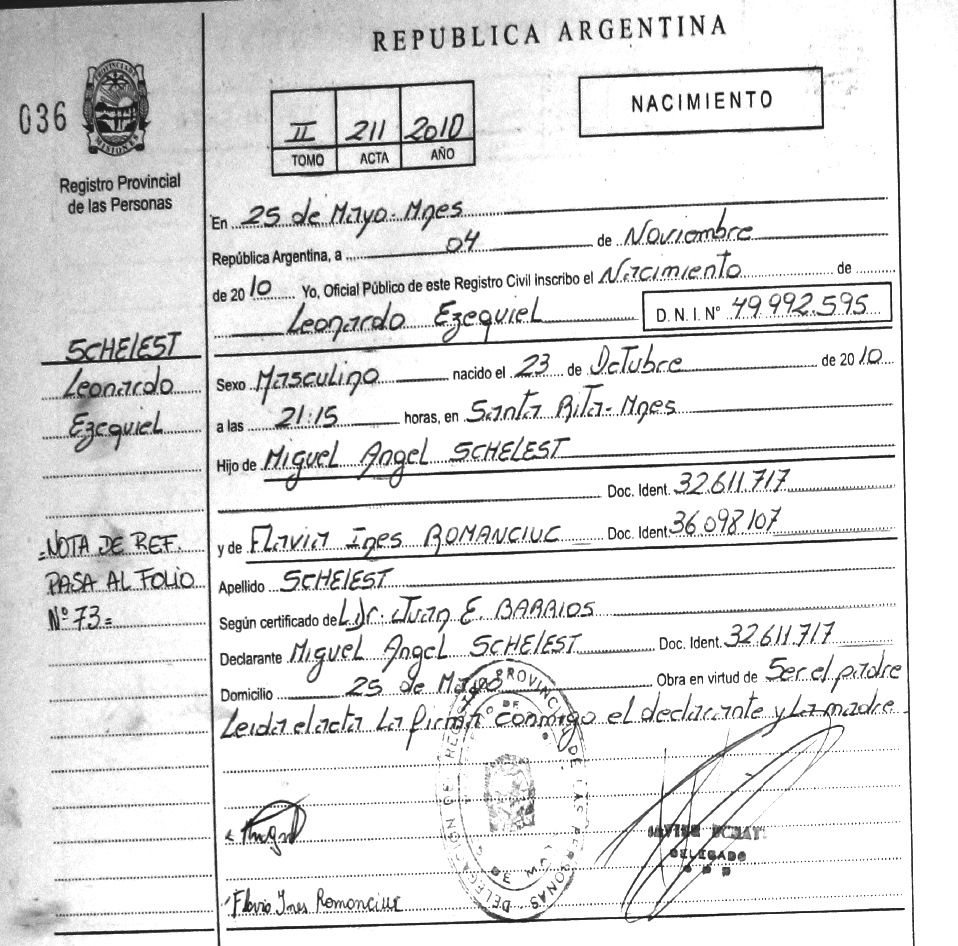 REPUBLICA ARGENTINA
036
PROVINCIA DE
MISIONES
Registro Provincial
de las Personas
II 211 2010
TOMO ACTA AÑO
NACIMIENTO
En 25 de Mayo - Mnes
República Argentina, a 04 de Noviembre
de 2010 Yo, Oficial Público de este Registro Civil inscribo el Nacimiento de
Leonardo Ezequiel D. N. I. N° 49.992.595
SCHELEST
Leonardo
Ezequiel
Sexo Masculino nacido el 23 de Octubre de 2010
a las 21:15 horas, en Santa Rita - Mnes
Hijo de Miguel Angel SCHELEST
Doc. Ident. 32.611.717
y de Flavia Ines ROMANCIUC Doc. Ident. 36.098.107
=NOTA DE REF.
PASA AL FOLIO
Nº 73=
Apellido SCHELEST
Según certificado de Dr. Juan E. BARRIOS
Declarante Miguel Angel SCHELEST Doc. Ident. 32.611.717
Domicilio 25 de Mayo Obra en virtud de Ser el padre
Leida el acta La firma conmigo el declarante y La madre
DELEGACIÓN DE REGISTRO PROVINCIAL DE LAS PERSONAS
DELEGADO
Flavia Ines Romanciuc